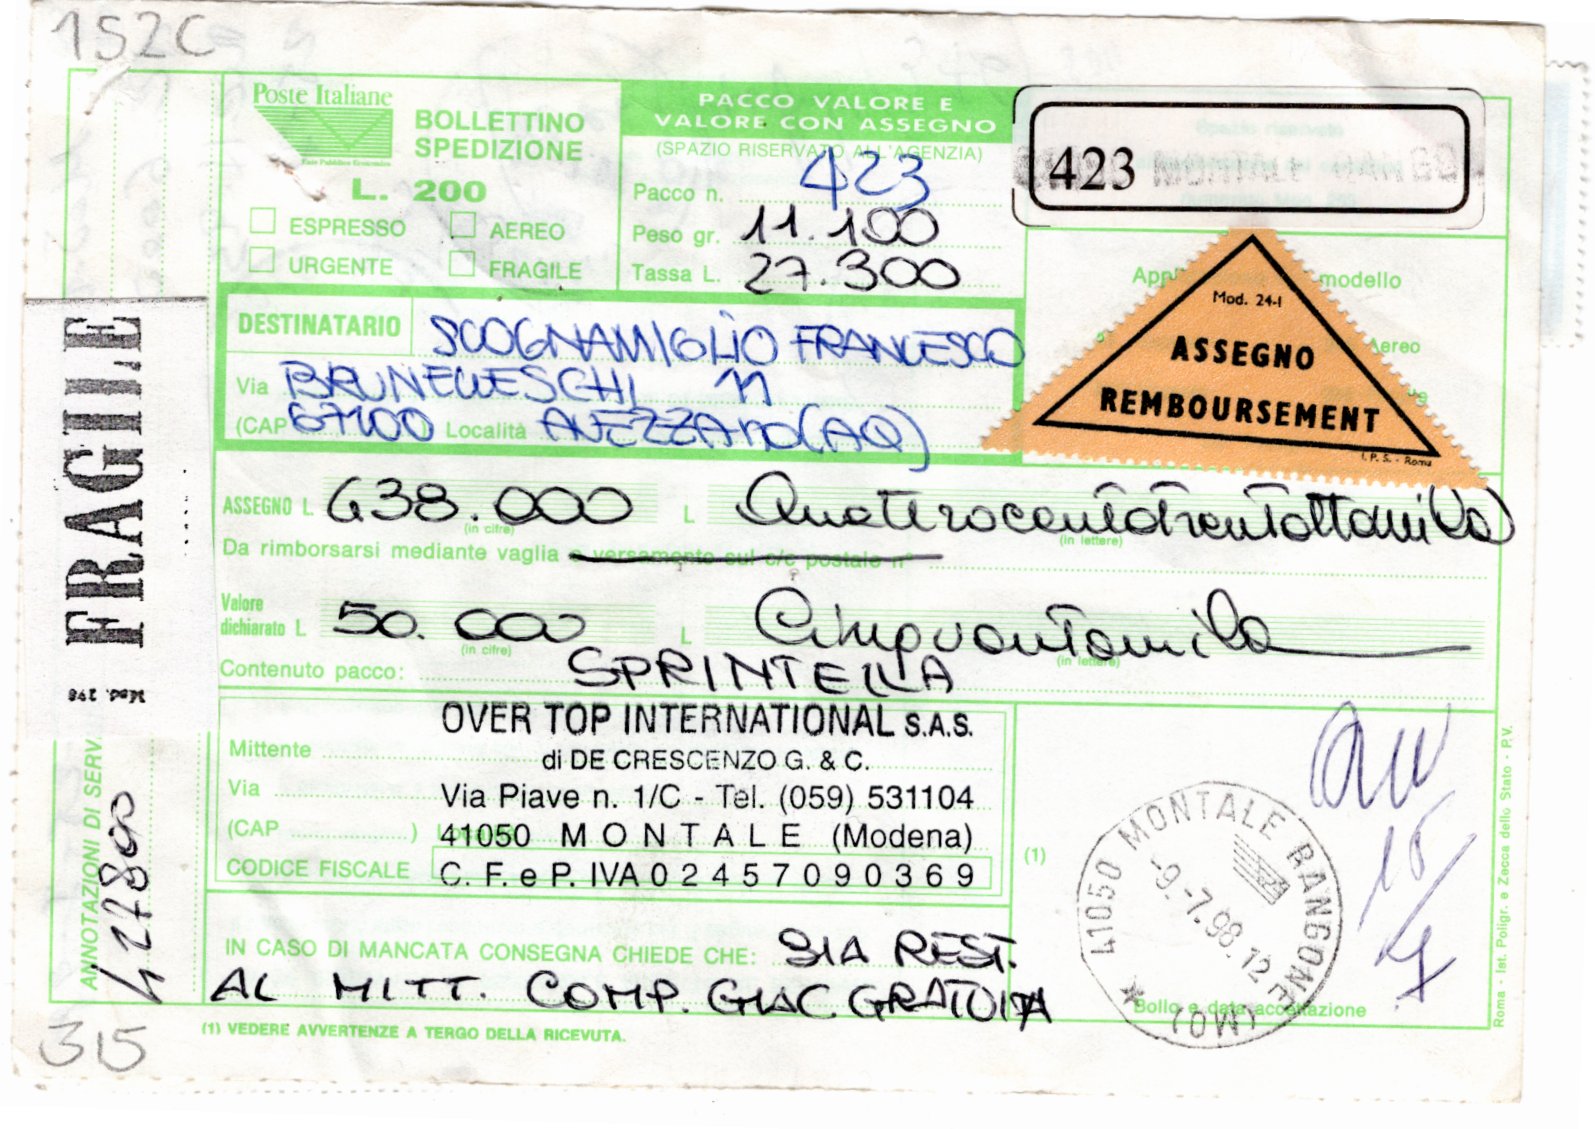 152C
Poste Italiane
Ente Pubblico Economico
BOLLETTINO
SPEDIZIONE
L. 200
ESPRESSO
AEREO
URGENTE
FRAGILE
PACCO VALORE E
VALORE CON ASSEGNO
(SPAZIO RISERVATO ALL'AGENZIA)
Pacco n. 423
Peso gr. 11.100
Tassa L. 27.300
423
Mod. 24-I
ASSEGNO
REMBOURSEMENT
I.P.S. - Roma
modello
Aereo
DESTINATARIO SCOGNAMIGLIO FRANCESCO
Via BRUNELLESCHI 11
(CAP 67100) Località AVEZZANO (AQ)
ASSEGNO L. 438.000 L. Quattrocentotrentottomila
(in cifre) (in lettere)
Da rimborsarsi mediante vaglia o versamento sul c/c postale n°
Valore
dichiarato L. 50.000 L. Cinquantamila
(in cifre) (in lettere)
Contenuto pacco: SPRINTELLA
OVER TOP INTERNATIONAL S.A.S.
Mittente di DE CRESCENZO G. & C.
Via Via Piave n. 1/C - Tel. (059) 531104
(CAP ) 41050 MONTALE (Modena)
CODICE FISCALE C. F. e P. IVA 02457090369
(1)
IN CASO DI MANCATA CONSEGNA CHIEDE CHE: SIA REST.
AL MITT. COMP. GIAC. GRATUITA
(1) VEDERE AVVERTENZE A TERGO DELLA RICEVUTA.
41050 MONTALE RANGONE (MO)
-9.-7.98.12
Bollo e data accettazione
15/7
Roma - Ist. Poligr. e Zecca dello Stato - P.V.
FRAGILE
Mod. 248
ANNOTAZIONI DI SERV
427800
315